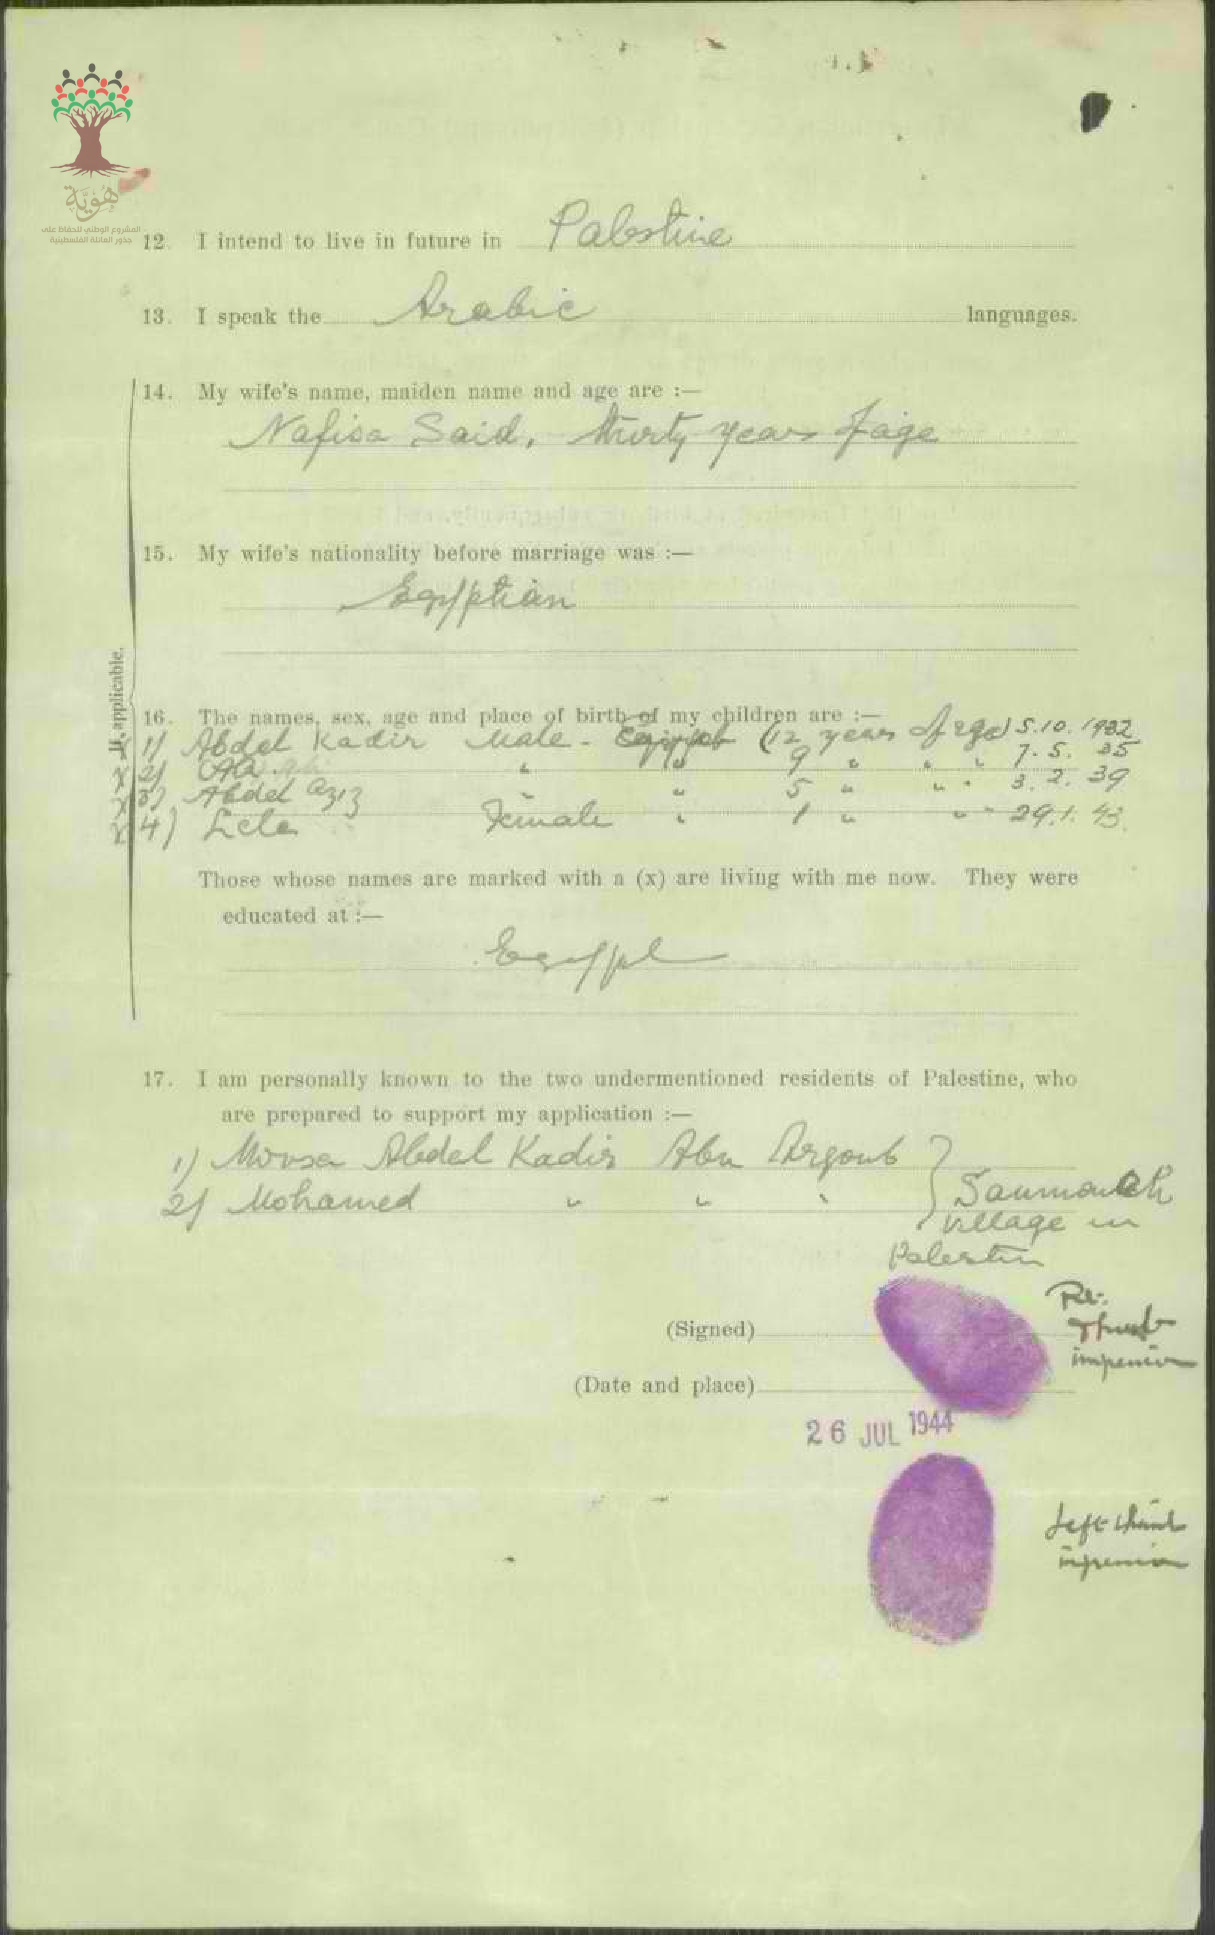 هُوِيَّة
المشروع الوطني للحفاظ على
جذور العائلة الفلسطينية
12. I intend to live in future in Palestine
13. I speak the Arabic languages.
14. My wife's name, maiden name and age are :—
Nafisa Said, thirty years of age
15. My wife's nationality before marriage was :—
Egyptian
If applicable.
16. The names, sex, age and place of birth of my children are :—
x 1) Abdel Kadir Male - Egypt (12 years of age) 5.10.1932
x 2) " " 9 " " " 7. 5. 35
x 3) Abdel Aziz " " 5 " " " 3. 2. 39
x 4) Lela Female " 1 " " " 29.1. 43.
Those whose names are marked with a (x) are living with me now. They were
educated at :—
Egypt
17. I am personally known to the two undermentioned residents of Palestine, who
are prepared to support my application :—
1) Moussa Abdel Kadir Abu Argoub
2) Mohamed " " "
village in
Palestin
(Signed)
Rt.
Thumb
impression
(Date and place)
26 JUL 1944
Left thumb
impression